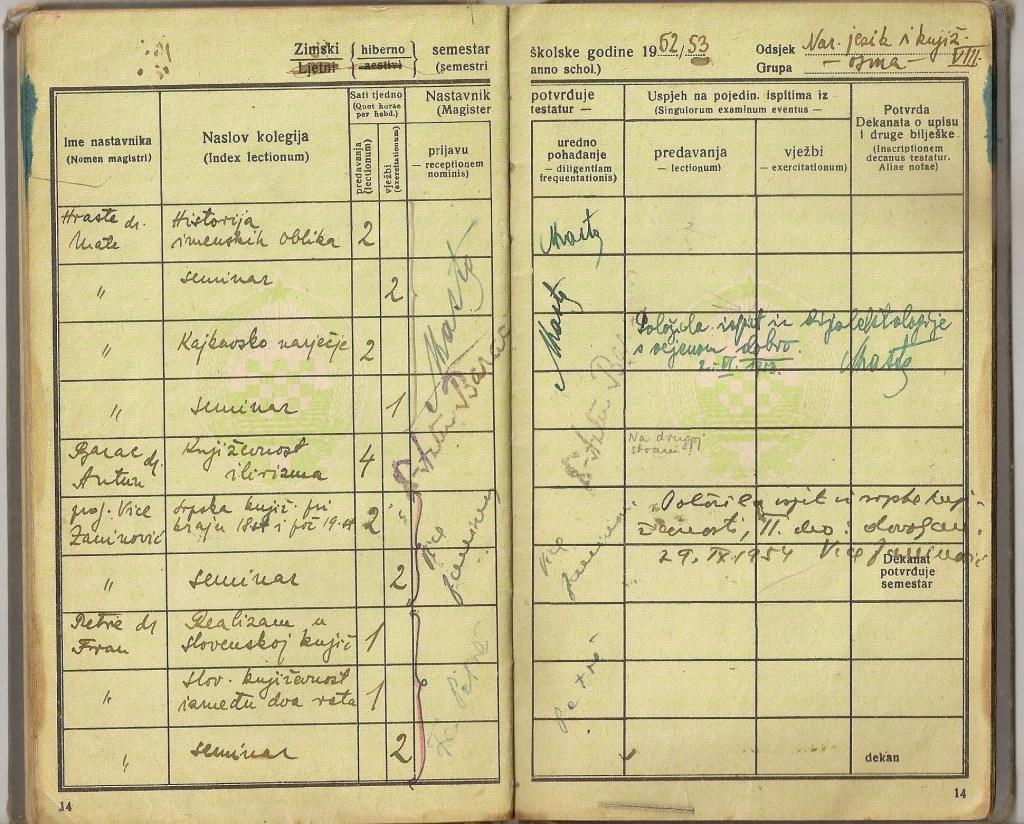 Zimski hiberno semestar
Ljetni aestivi (semestri
školske godine 1952/53
anno schol.)
Odsjek Nar. jezik i knjiž.
Grupa — osma — VIII.
Ime nastavnika
(Nomen magistri)
Naslov kolegija
(Index lectionum)
Sati tjedno
(Quot horae
per hebd.)
predavanja
(lectionum)
vježbi
(exercitationum)
Nastavnik
(Magister
prijavu
— receptionem
nominis)
potvrđuje
testatur —
uredno
pohađanje
— diligentiam
frequentationis)
Uspjeh na pojedin. ispitima iz
(Singulorum examinum eventus —
predavanja
— lectionum)
vježbi
— exercitationum)
Potvrda
Dekanata o upisu
i druge bilješke
(Inscriptionem
decanus testatur.
Aliae notae)
Hraste dr. Historija
Mate imenskih oblika 2
" seminar 2
" Kajkavsko narječje 2
" seminar 1
Barac dr. Književnost
Antun ilirizma 4
prof. Vice Srpska knjiž. pri
Zaninović kraju 18 st i poč 19. st 2
" seminar 2
Petrè dr Realizam u
Fran slovenskoj knjiž 1
" Slov. književnost
između dva rata 1
" seminar 2
Barac
Vice
Petrè
Položila ispit iz dijalektologije
s ocjenom dobro.
Na drugoj
strani
Položila ispit iz srpske knji-
ževnosti, II. dio: dovoljan.
29. IX 1954 Vice Zaninović
Vice
Petrè
Dekanat
potvrđuje
semestar
dekan
14
14